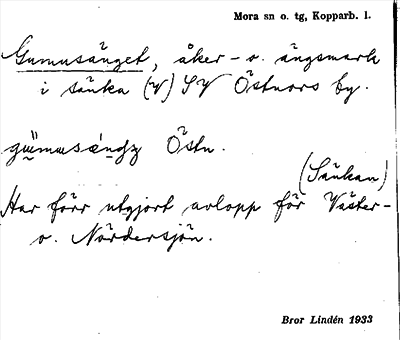 Mora sn o. tg, Kopparb. l.
Gumusänget, åker- o. ängsmark
i sänka (V) SV Östnors by.
gumusę́ndz Östn.
(Sänkan)
Har förr utgjort avlopp för Väster-
o. Nördersjön.
Bror Lindén 1933